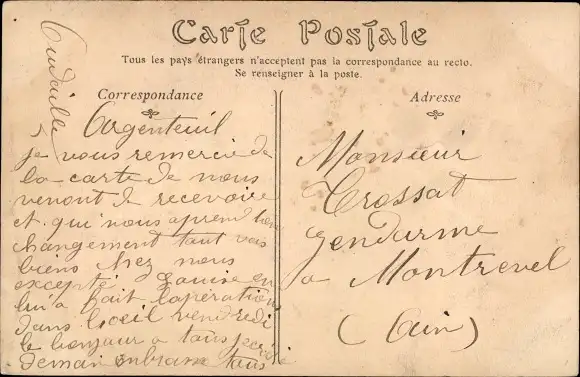 Carte Postale
Tous les pays étrangers n'acceptent pas la correspondance au recto.
Se renseigner à la poste.
Correspondance
Argenteuil
je vous remercie de
la carte de nous
venont de recevoire
et qui nous aprend
changement tout vas
biens chez nous
excepté Louise on
lui a fait lapération
dans loeil vendredi
le bonjour a tous
demain onbrasse tous
Adresse
Monsieur
Crossat
gendarme
a Montrevel
(Ain)